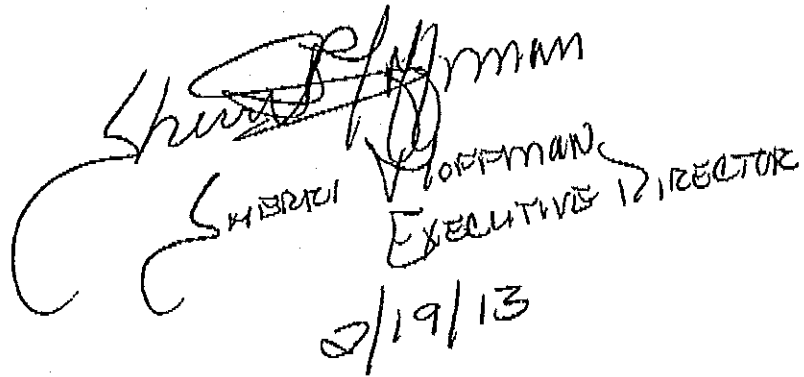 Sherri Hoffman
SHERRI HOFFMAN,
EXECUTIVE DIRECTOR
2/19/13